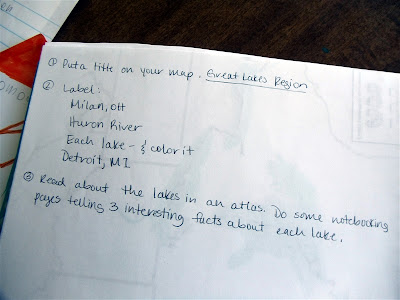 ① Put a title on your map. Great Lakes Region
② Label:
Milan, OH
Huron River
Each lake - & color it
Detroit, MI
③ Read about the lakes in an atlas. Do some notebooking
pages telling 3 interesting facts about each lake.